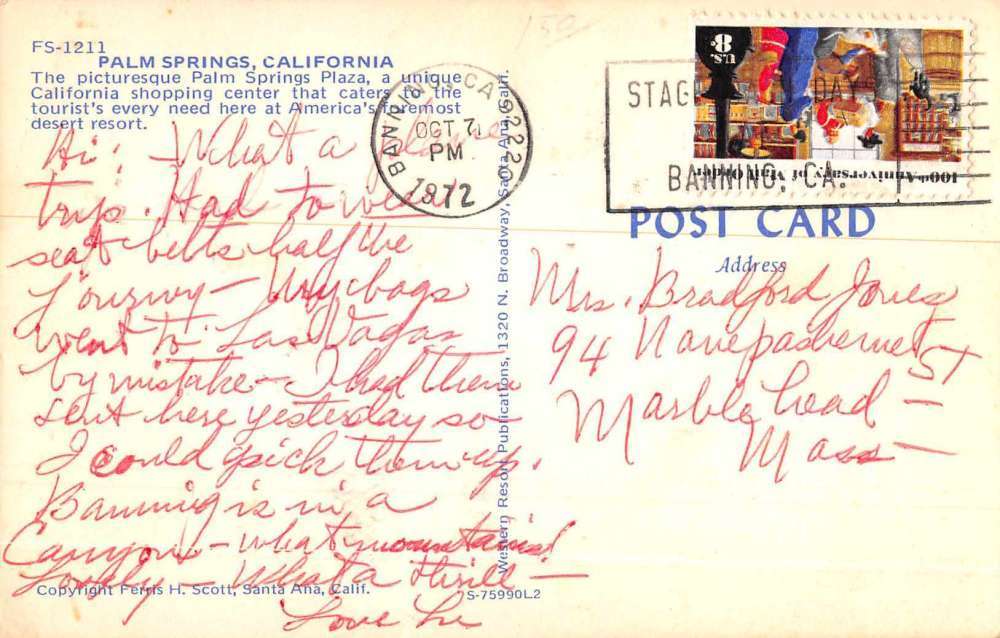 FS-1211
PALM SPRINGS, CALIFORNIA
The picturesque Palm Springs Plaza, a unique
California shopping center that caters to the
tourist's every need here at America's foremost
desert resort.
BANNING, CA 92220
OCT 7
PM
1972
STAG DAY
BANNING, CA.
U.S. 8¢
100th Anniversary of Mail Order
POST CARD
Address
Hi! What a
trip. Had to wear
seat belts half the
journey – My bags
went to Las Vagas
by mistake – I had them
sent here yesterday so
I could pick them up.
Banning is in a
Canyon – what mountains!
Lovely – What a thrill –
Love
Mrs. Bradford Jones
94 ST
Marblehead –
Mass –
Western Resort Publications, 1320 N. Broadway, Santa Ana, Calif.
Copyright Ferris H. Scott, Santa Ana, Calif.
S-75990L2